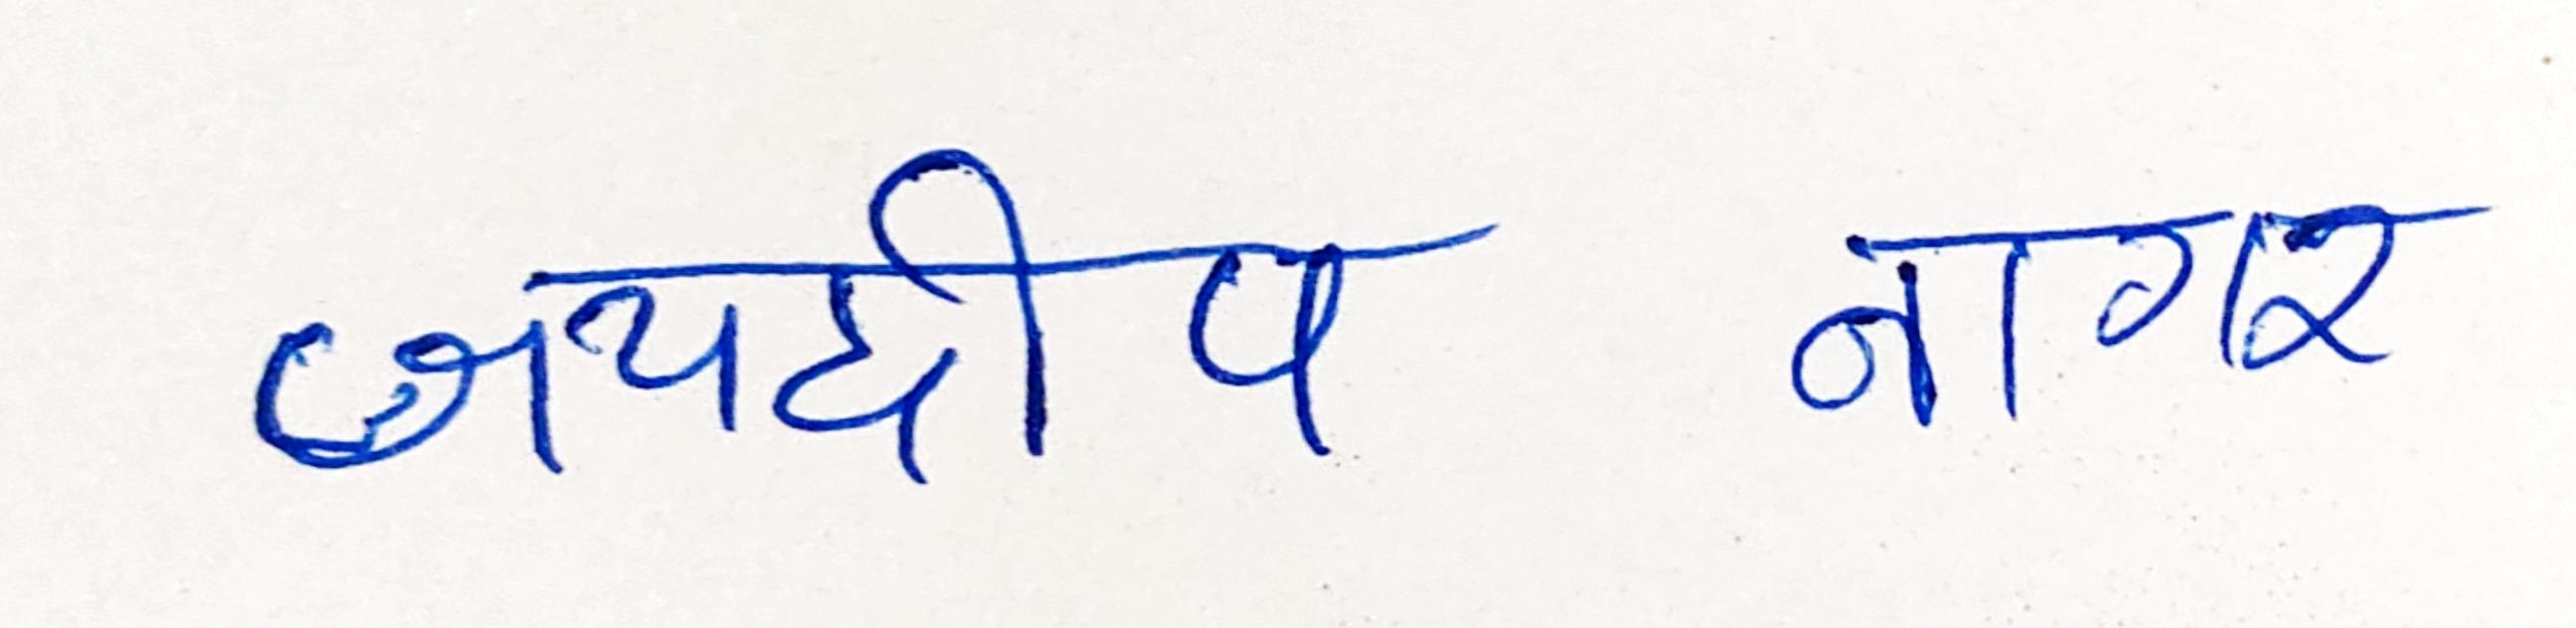 जयदीप नागर